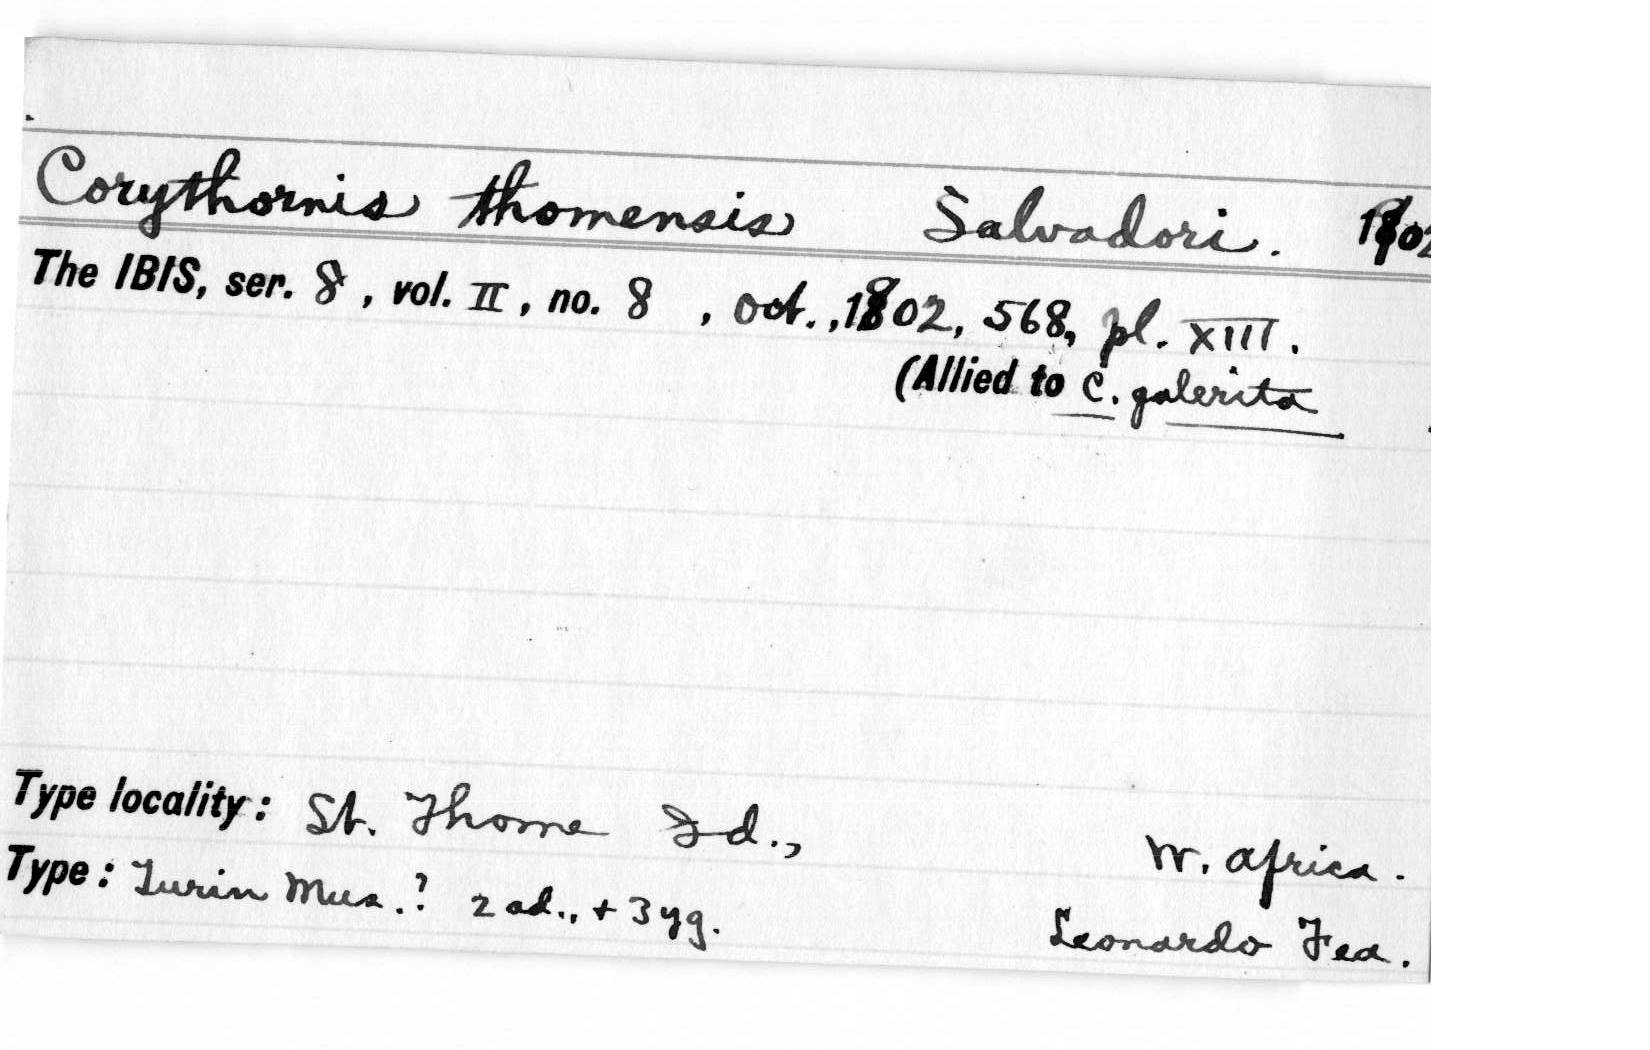 Corythornis thomensis Salvadori. 1902
The IBIS, ser. 8, vol. II, no. 8, Oct., 1902, 568, pl. XIII.
(Allied to C. galerita
Type locality: St. Thome Id., W. Africa.
Type: Turin Mus.? 2 ad., + 3 yg. Leonardo Fea.